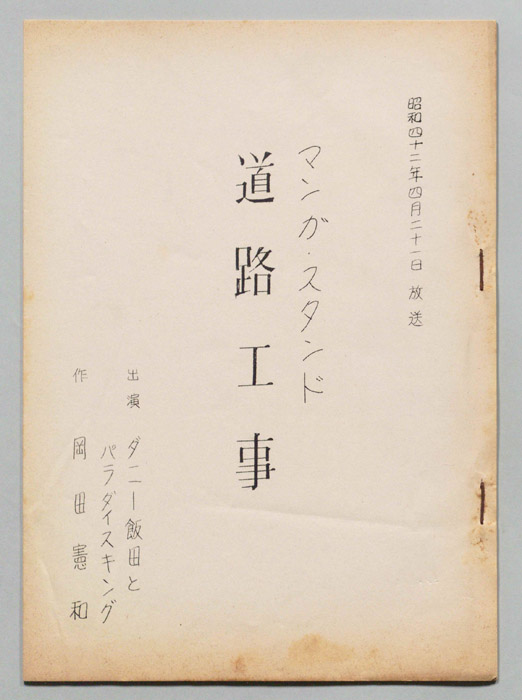 昭和四十二年四月二十一日 放送
マンガ・スタンド
道路工事
出演 ダニー飯田と
パラダイスキング
作 岡田憲和